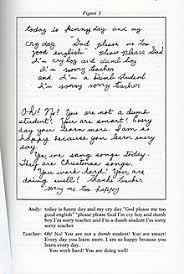 Figure 3
today is funny day and my
cry day. God please me too
good english" please God
I'm cry boy and dumb boy
I'm sorry teacher
and I'm a Dumb student
I'm sorry sorry teacher
Oh! No! You are not a dumb
student! You are smart! Every
day you learn more. I am
happy because you learn
every day.
you we sang songs today.
They are Christmas songs.
You work hard! You are
doing well! Thanks Teacher
sorry me too happy
Andy: today is funny day and my cry day "God please me too
good english" "please please God I'm cry boy and dumb
boy I'm sorry teacher and I'm a dumb student I'm sorry
sorry teacher
Teacher: Oh! No! You are not a dumb student! You are smart!
Every day you learn more. I am so happy because you
learn every day.
You work hard! You are doing well!